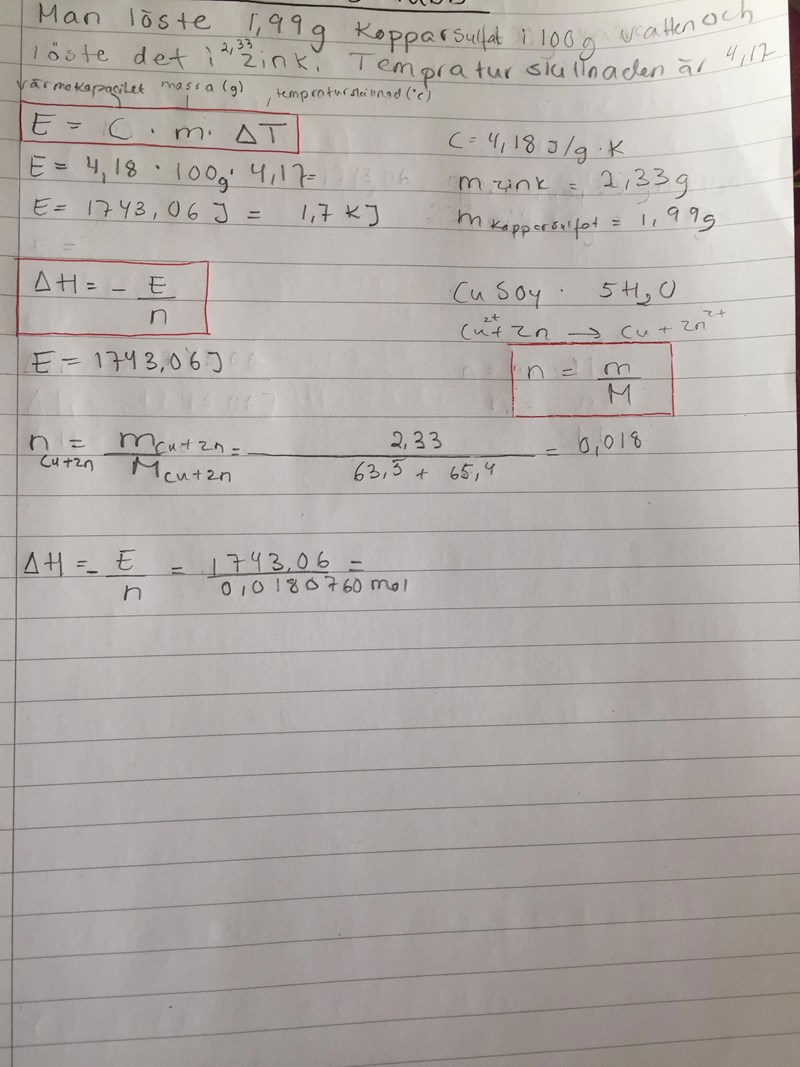 Man löste 1,99g Kopparsulfat i 100g vatten och
löste det i 2,33 zink. Tempratur skillnaden är 4,17
värmekapacitet massa (g), tempraturskillnad (°c)
E = C · m · ΔT
C = 4,18 J/g · K
E = 4,18 · 100g · 4,17=
m zink = 2,33g
E = 1743,06 J = 1,7 KJ
m Kopparsulfat = 1,99g
ΔH = - E/n
CuSO4 · 5H2O
Cu2+ + Zn → Cu + Zn2+
E = 1743,06 J
n = m/M
n Cu+Zn = m Cu+Zn / M Cu+Zn = 2,33 / 63,5 + 65,4 = 0,018
ΔH = - E/n = 1743,06 / 0,0180760 mol =